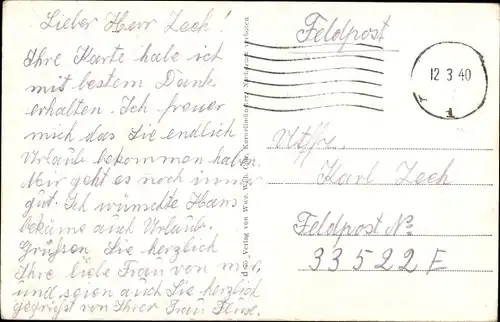 Lieber Herr Zech!
Ihre Karte habe ich
mit bestem Dank
erhalten. Ich freuer
mich das Sie endlich
Urlaub bekommen haben.
Mir geht es noch immer
gut. Ich wünschte Hans
bekäme auch Urlaub.
Grüßen Sie herzlich
Ihre liebe Frau von mir,
und seien auch Sie herzlich
gegrüßt von Ihrer Frau
Feldpost
12.3.40
1
Karl Zech
Feldpost No
33522 E
Verlag von Wwe. Wilh.
Nachdruck verboten